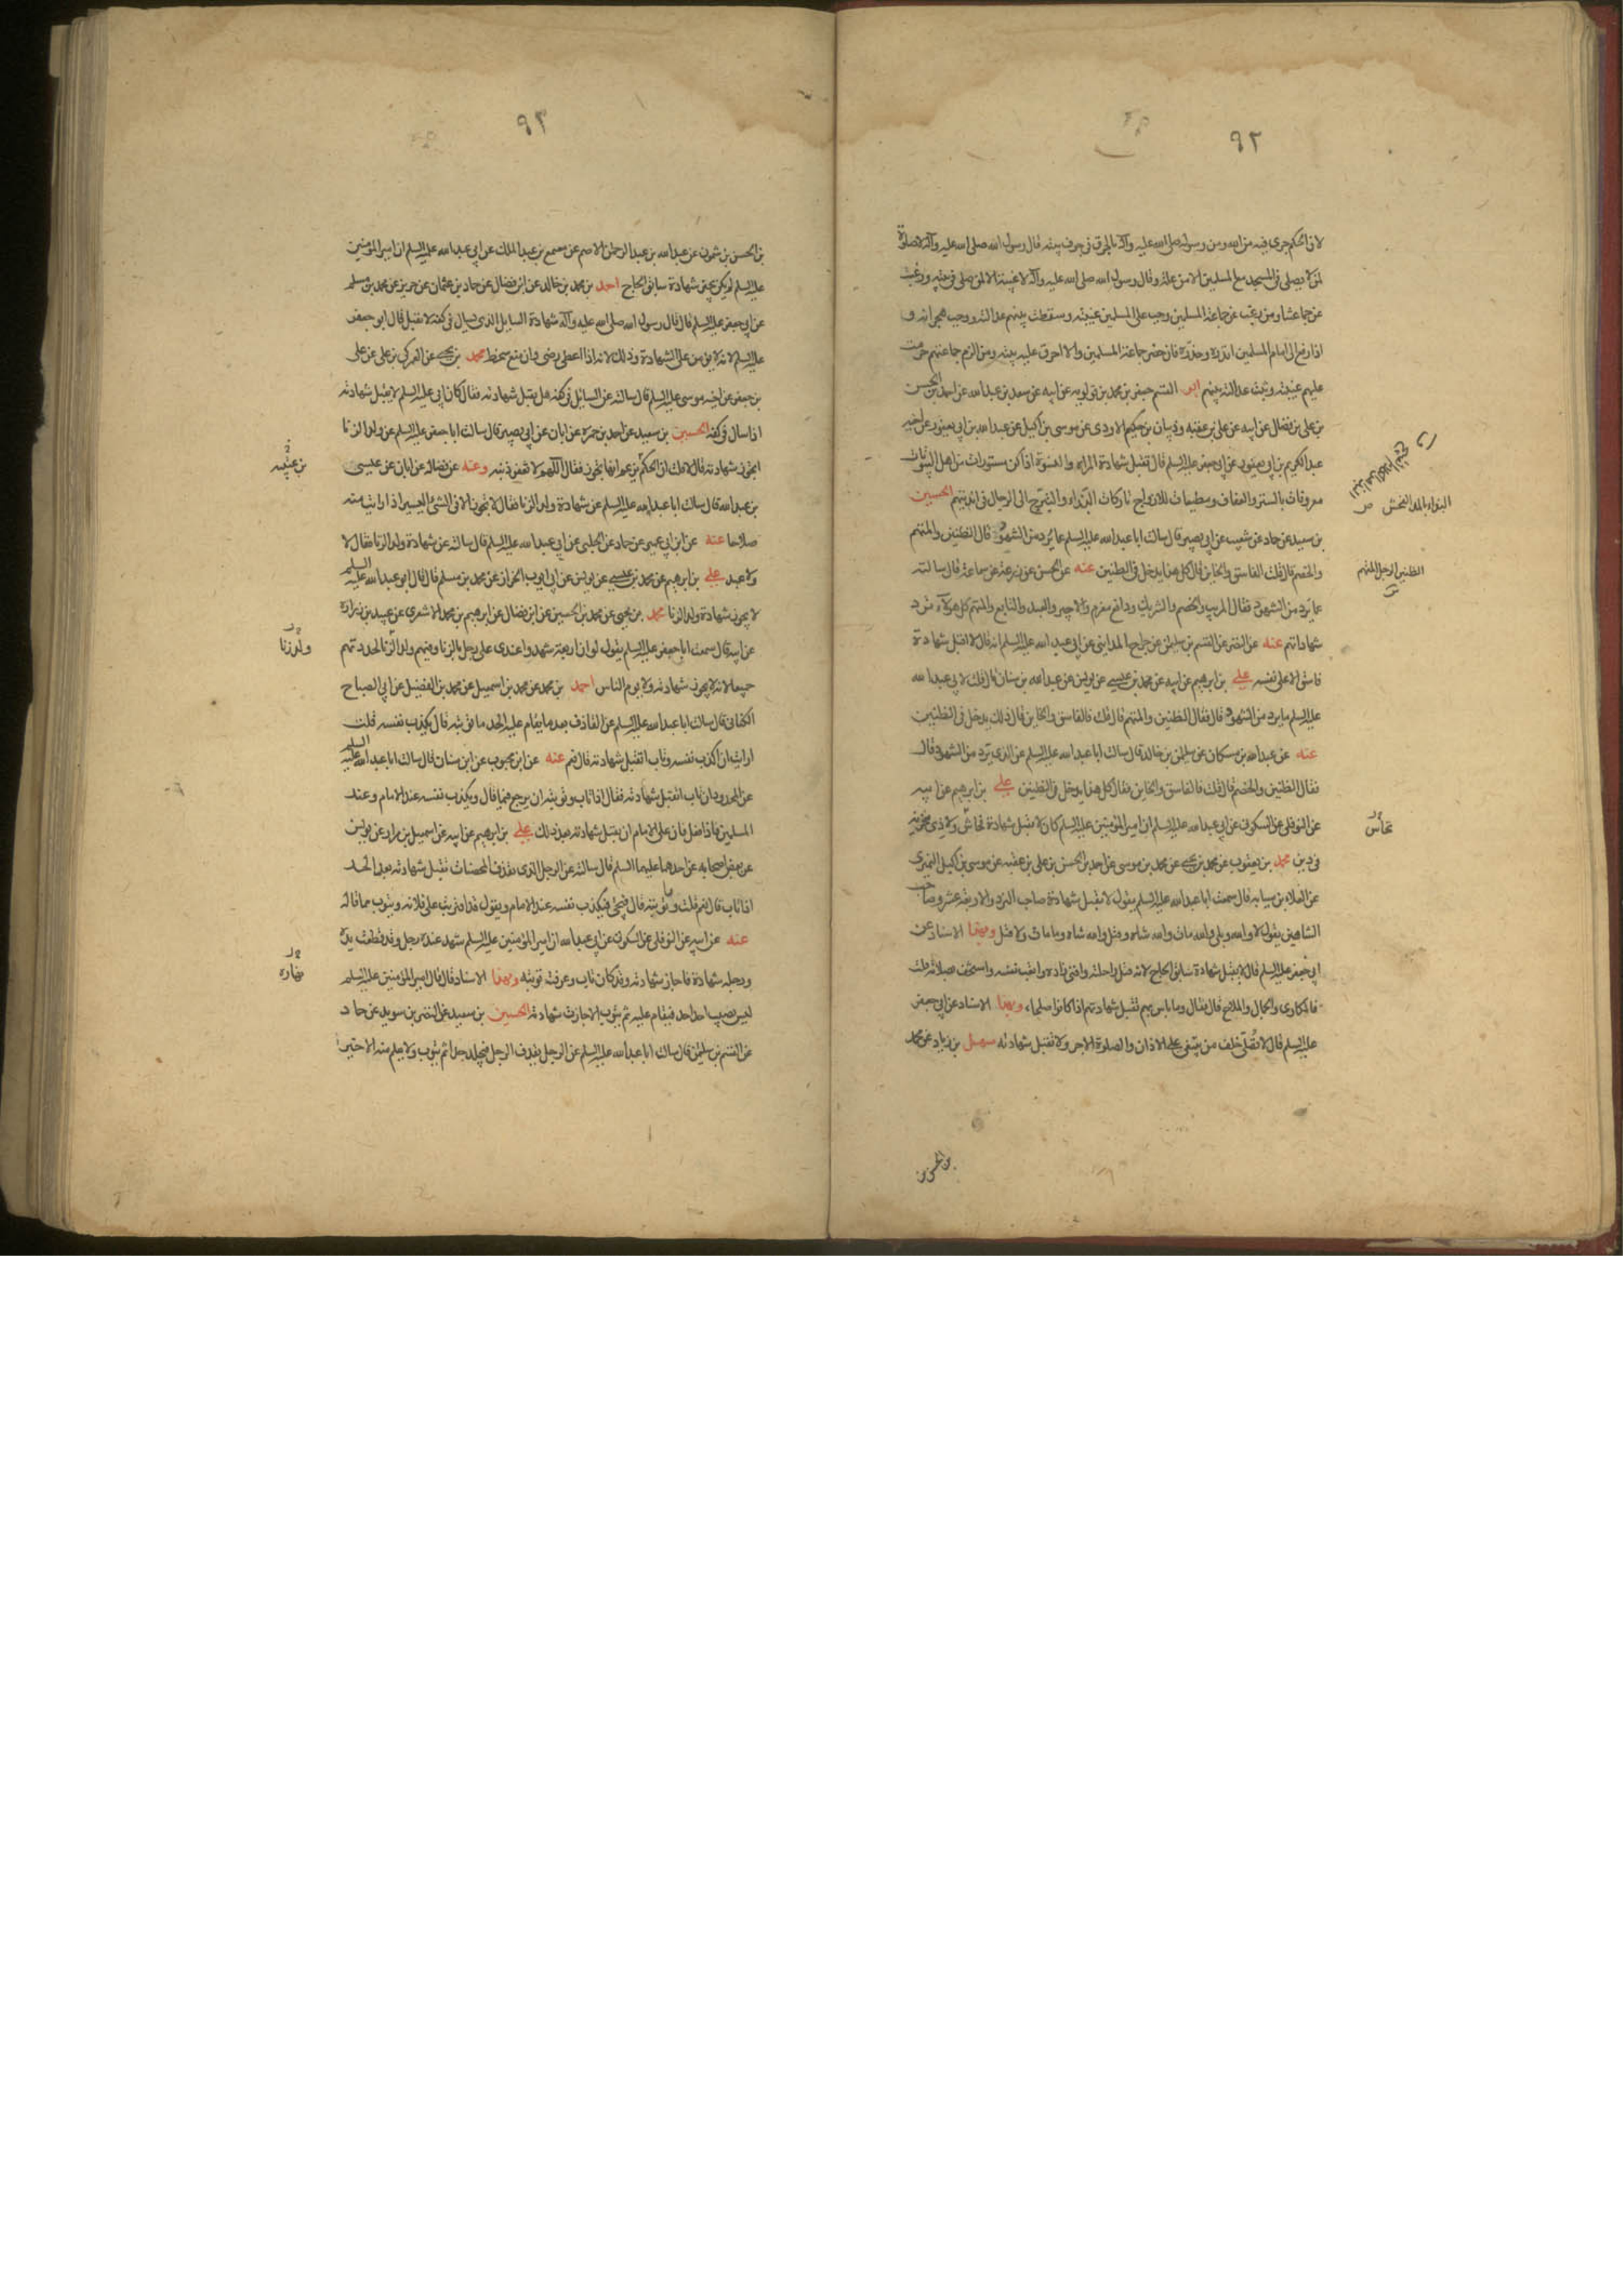 ٩٢
لان الحكم جرى فيه من الله ومن رسوله صلى الله عليه وآله بالحرق فى جوف بيته قال رسول الله صلى الله عليه وآله لا صلوة
لمن لا يصلى فى المسجد مع المسلمين الا من علة وقال رسول الله صلى الله عليه وآله لا غيبة الا لمن صلى فى بيته ورغب
عن جماعتنا ومن رغب عن جماعة المسلمين وجب على المسلمين غيبته وسقطت بينهم عدالته ووجب هجرانه و
اذا رفع الى امام المسلمين انذره وحذره فان حضر جماعة المسلمين والا احرق عليه بيته ومن لزم جماعتهم حرمت
عليهم غيبته وثبت عدالته بينهم ابو القسم جعفر بن محمد بن قولويه عن ابيه عن سعد بن عبد الله عن احمد بن الحسن
بن على بن فضال عن ابيه عن على بن عقبه وذبيان بن حكيم الاودى عن موسى بن اكيل عن عبد الله بن ابى يعفور عن اخيه
عبد الكريم بن ابى يعفور عن ابى جعفر عليه السلم قال تقبل شهادة المراة والنسوة اذا كن مستورات من اهل البيوتات
معروفات بالستر والعفاف ومطيعات للازواج تاركات البذاء والتبرج الى الرجال فى انديتهم الحسين
بن سعيد عن حماد عن شعيب عن ابى بصير قال سالت ابا عبد الله عليه السلم عما يرد من الشهود قال الظنين والمتهم
والخصم قال قلت الفاسق والخاين قال كل هذا يدخل فى الظنين عنه عن الحسن عن زرعة عن سماعة قال سالته
عما يرد من الشهود فقال المريب والخصم والشريك ودافع مغرم والاجير والعبد والتابع والمتهم كل هولاء ترد
شهاداتهم عنه عن النضر عن القسم بن سليمن عن جراح المدايني عن ابى عبد الله عليه السلم انه قال لا اقبل شهادة
فاسق الا على نفسه على بن ابرهيم عن ابيه عن محمد بن عيسى عن يونس عن عبد الله بن سنان قال قلت لابى عبد الله
عليه السلم ما يرد من الشهود قال فقال الظنين والمتهم قال قلت فالفاسق والخاين قال ذلك يدخل فى الظنين
عنه عن عبد الله بن مسكان عن سليمن بن خالد قال سالت ابا عبد الله عليه السلم عن الذى يرد من الشهود قال
فقال الظنين والخصم قال قلت فالفاسق والخاين فقال كل هذا يدخل فى الظنين على بن ابرهيم عن ابيه
عن النوفلى عن السكونى عن ابى عبد الله عليه السلم ان امير المؤمنين عليه السلم كان لا تقبل شهادة فحاش ولا ذى مخزية
فى دين محمد بن يعقوب عن محمد بن يحيى عن محمد بن موسى عن احمد بن الحسن بن على بن عقبه عن موسى بن اكيل النميرى
عن العلاء بن سيابه قال سمعت ابا عبد الله عليه السلم يقول لا تقبل شهادة صاحب النرد والاربعة عشر وصاحب
الشاهين يقول لا والله وبلى والله مات والله شاه وقتل والله شاه وما مات ولا قتل وبهذا الاسناد عن
ابى جعفر عليه السلم قال لا يقبل شهادة سابق الحاج لانه قتل راحلته وافنى زاده واتعب نفسه واستخف بصلاته قلت
فالمكارى والجمال والملاح قال فقال وما باس بهم تقبل شهادتهم اذا كانوا صلحاء وبهذا الاسناد عن ابى جعفر
عليه السلم قال لا تصلى خلف من يبتغى على الاذان والصلوة الاجر ولا تقبل شهادته سهل بن زياد عن محمد
بن الحسن بن
البذاء بالمد الفحش ص
الظنين الرجل المتهم
فحاش
٩٣
بن الحسن بن شمون عن عبد الله بن عبد الرحمن الاصم عن مسمع بن عبد الملك عن ابى عبد الله عليه السلم ان امير المؤمنين
عليه السلم لم يكن يجيز شهادة سابق الحاج احمد بن محمد بن خالد عن ابن فضال عن حماد بن عثمان عن حريز عن محمد بن مسلم
عن ابى جعفر عليه السلم قال قال رسول الله صلى الله عليه وآله شهادة السايل الذى يسال فى كفه لا تقبل قال ابو جعفر
عليه السلم لانه لا يؤمن على الشهادة وذلك لانه اذا اعطى رضى وان منع سخط محمد بن يحيى عن العمركى بن على عن على
بن جعفر عن اخيه موسى عليه السلم قال سالته عن السائل فى كفه هل يقبل شهادته فقال كان ابى عليه السلم لا يقبل شهادته
اذا سال فى كفه الحسين بن سعيد عن احمد بن حمزه عن ابان عن ابى بصير قال سالت ابا جعفر عليه السلم عن ولد الزنا
اتجوز شهادته قال لا قلت ان الحكم يزعم انها تجوز فقال اللهم لا تغفر ذنبه وعنه عن فضاله عن ابان عن عيسى
بن عبد الله قال سالت ابا عبد الله عليه السلم عن شهادة ولد الزنا فقال لا تجوز الا فى الشئ اليسير اذا رايت منه
صلاحا عنه عن ابن ابى عمير عن حماد عن الحلبى عن ابى عبد الله عليه السلم قال سالته عن شهادة ولد الزنا فقال لا
ولا عبد على بن ابرهيم عن محمد بن عيسى عن يونس عن ابى ايوب الخزاز عن محمد بن مسلم قال قال ابو عبد الله عليه السلم
لا يجوز شهادة ولد الزنا محمد بن يحيى عن محمد بن الحسين عن ابن فضال عن ابرهيم بن محمد الاشعرى عن عبيد بن زرارة
عن ابيه قال سمعت ابا جعفر عليه السلم يقول لو ان اربعة شهدوا عندى على رجل بالزنا وفيهم ولد الزنا لحددتهم
جميعا لانه لا يجوز شهادته ولا يوم الناس احمد بن محمد عن محمد بن اسمعيل عن محمد بن الفضيل عن ابى الصباح
الكنانى قال سالت ابا عبد الله عليه السلم عن القاذف بعد ما يقام عليه الحد ما توبته قال يكذب نفسه قلت
ارايت ان اكذب نفسه وتاب اتقبل شهادته قال نعم عنه عن ابن محبوب عن ابن سنان قال سالت ابا عبد الله عليه السلم
عن المحدود ان تاب اتقبل شهادته فقال اذا تاب وتوبته ان يرجع فيما قال ويكذب نفسه عند الامام وعند
المسلمين فاذا فعل فان على الامام ان يقبل شهادته بعد ذلك على بن ابرهيم عن ابيه عن اسمعيل بن مرار عن يونس
عن بعض اصحابه عن احدهما عليهما السلم قال سالته عن الرجل الذى يقذف المحصنات تقبل شهادته بعد الحد
اذا تاب قال نعم قلت وما توبته قال فيجئ فيكذب نفسه عند الامام ويقول قد افتريت على فلانه ويتوب مما قاله
عنه عن ابيه عن النوفلى عن السكونى عن ابى عبد الله ان امير المؤمنين عليه السلم شهد عنده رجل وقد قطعت يده
ورجله شهادة فاجاز شهادته وقد كان تاب وعرفت توبته وبهذا الاسناد قال قال امير المؤمنين عليه السلم
ليس يصيب احد احد فيقام عليه ثم يتوب الا جازت شهادته الحسين بن سعيد عن النضر بن سويد عن حماد
عن القسم بن سليمن قال سالت ابا عبد الله عليه السلم عن الرجل يقذف الرجل فيجلد حدا ثم يتوب ولا يعلم منه الا خيرا
ولد زنا